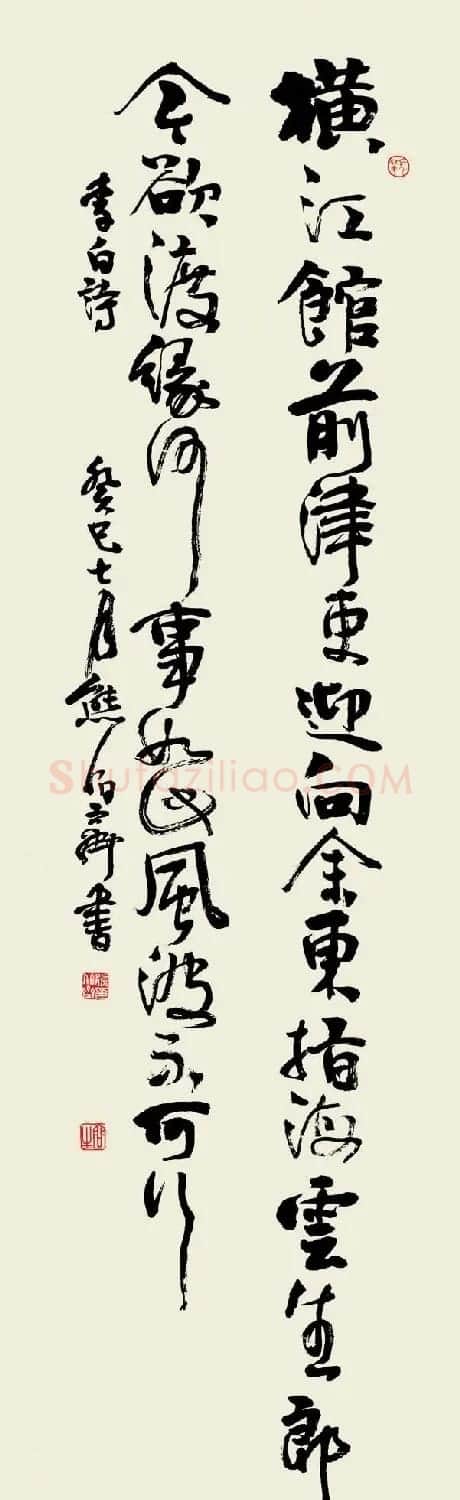 橫江館前津吏迎向余東指海雲生郎
今欲渡緣何事如此風波不可行
李白詩
癸巳七月熊伯齊書
Shufaziliao.COM